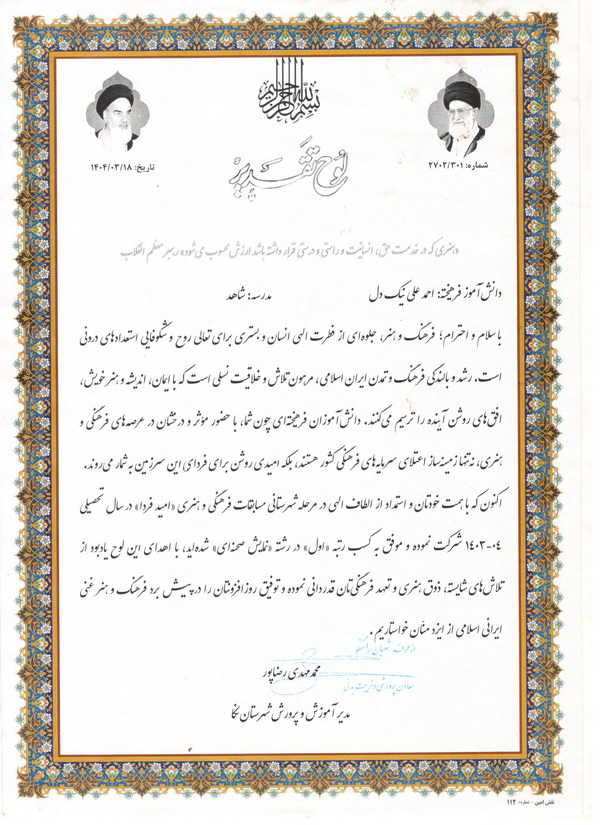 بسم الله الرحمن الرحیم
شماره: ۲۷۰۲/۳۰۱
تاریخ: ۱۴۰۴/۰۳/۱۸
لوح تقدیر
«هنری که در خدمت حق، انسانیت و راستی و درستی قرار داشته باشد ارزش محسوب می‌شود» رهبر معظم انقلاب
دانش آموز فرهیخته: احمد علی نیک دل مدرسه: شاهد
با سلام و احترام؛ فرهنگ و هنر، جلوه‌ای از فطرت الهی انسان و بستری برای تعالی روح و شکوفایی استعدادهای درونی
است. رشد و بالندگی فرهنگ و تمدن ایران اسلامی، مرهون تلاش و خلاقیت نسلی است که با ایمان، اندیشه و هنر خویش،
افق‌های روشن آینده را ترسیم می‌کنند. دانش‌آموزان فرهیخته‌ای چون شما، با حضور مؤثر و درخشان در عرصه‌های فرهنگی و
هنری، نه تنها زمینه‌ساز اعتلای سرمایه‌های فرهنگی کشور هستند، بلکه امیدی روشن برای فردای این سرزمین به شمار می‌روند.
اکنون که با همت خودتان و استمداد از الطاف الهی در مرحله شهرستانی مسابقات فرهنگی و هنری «امید فردا» در سال تحصیلی
۱۴۰۳-۰۴ شرکت نموده و موفق به کسب رتبه «اول» در رشته «نمایش صحنه‌ای» شده‌اید، با اهدای این لوح یادبود از
تلاش‌های شایسته، ذوق هنری و تعهد فرهنگی‌تان قدردانی نموده و توفیق روزافزونتان را در پیش برد فرهنگ و هنر غنی
ایرانی اسلامی از ایزد منّان خواستاریم.
از طرف
محمدمهدی رضاپور
معاون پرورشی و تربیت بدنی
مدیر آموزش و پرورش شهرستان نکا
نقش امین - شماره: ۱۱۲